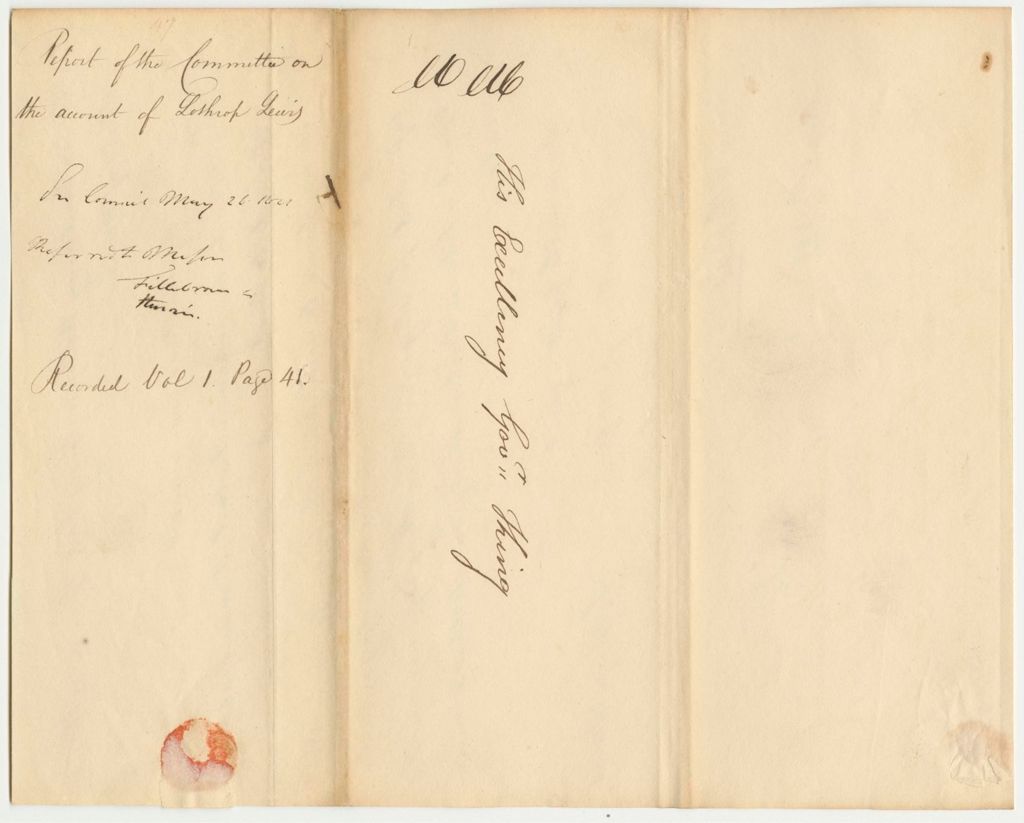 Report of the Committee on
the account of Lothrop Lewis
In Council May 26
Referred to
Fillebrown &
Recorded Vol 1. Page 41.
His Excellency Gov.r King